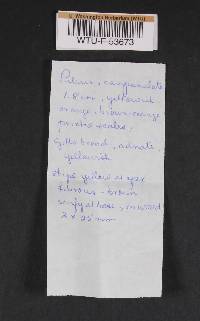 U. Washington Herbarium (WTU)
WTU-F-53673
Pileus, campanulate
1.8 cm, yellowish
orange, brown-orange
scales,
Gills broad, adnate,
yellowish
Stipe yellow at apex
fibrous - brown
at base,
2 x 25 mm